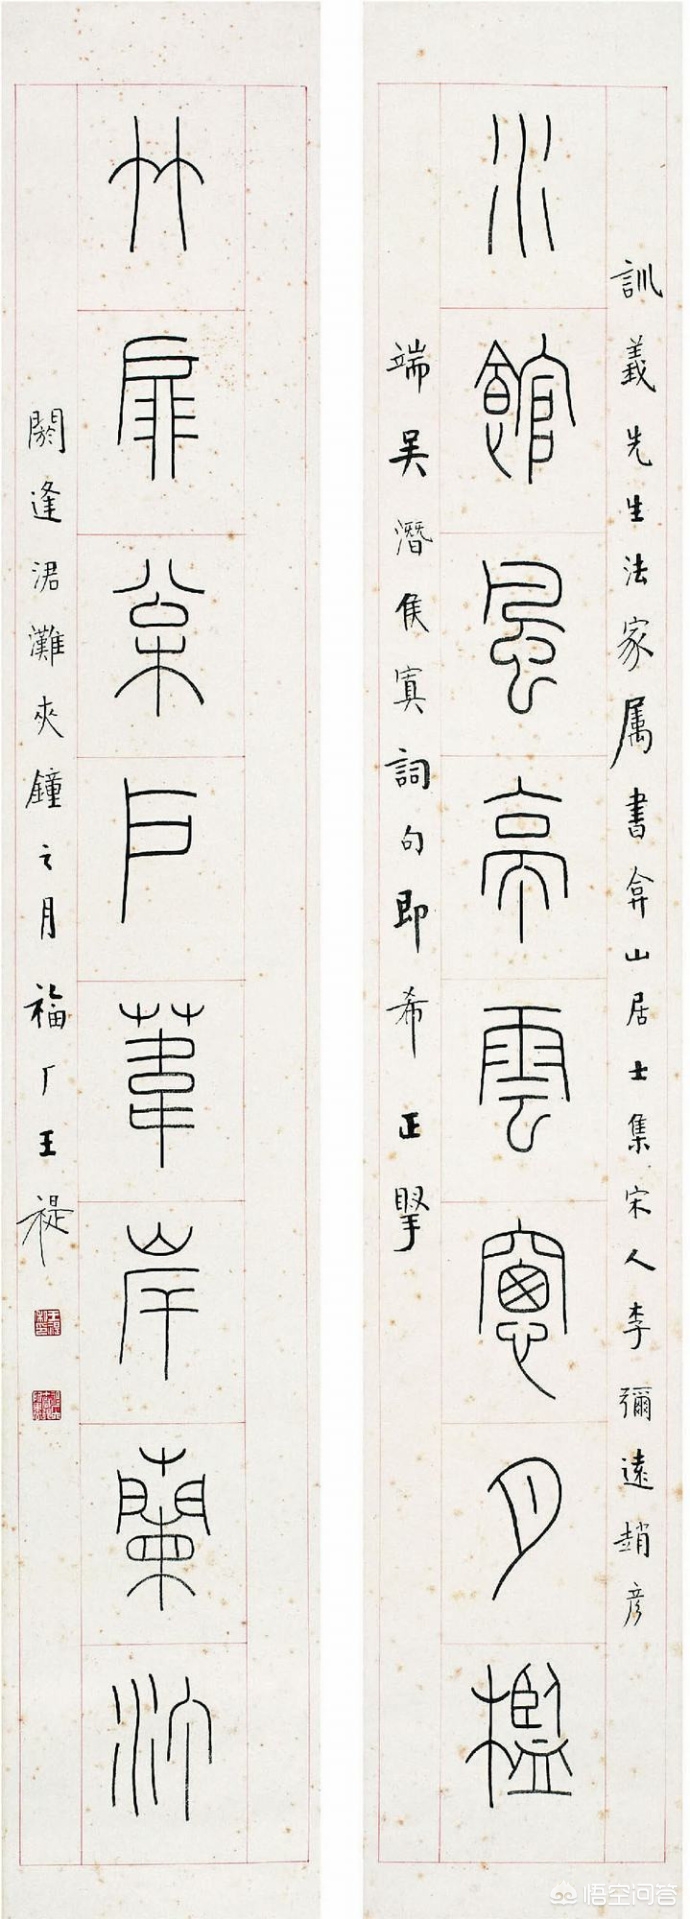 訓義先生法家属書弇山居士集宋人李彌遠趙彥
水館風亭雲窻月檻
端吳潛侯寘詞句即希正掔
竹扉枀戶葦岸蘭汀
閼逢涒灘夾鐘之月福厂王禔
悟空问答